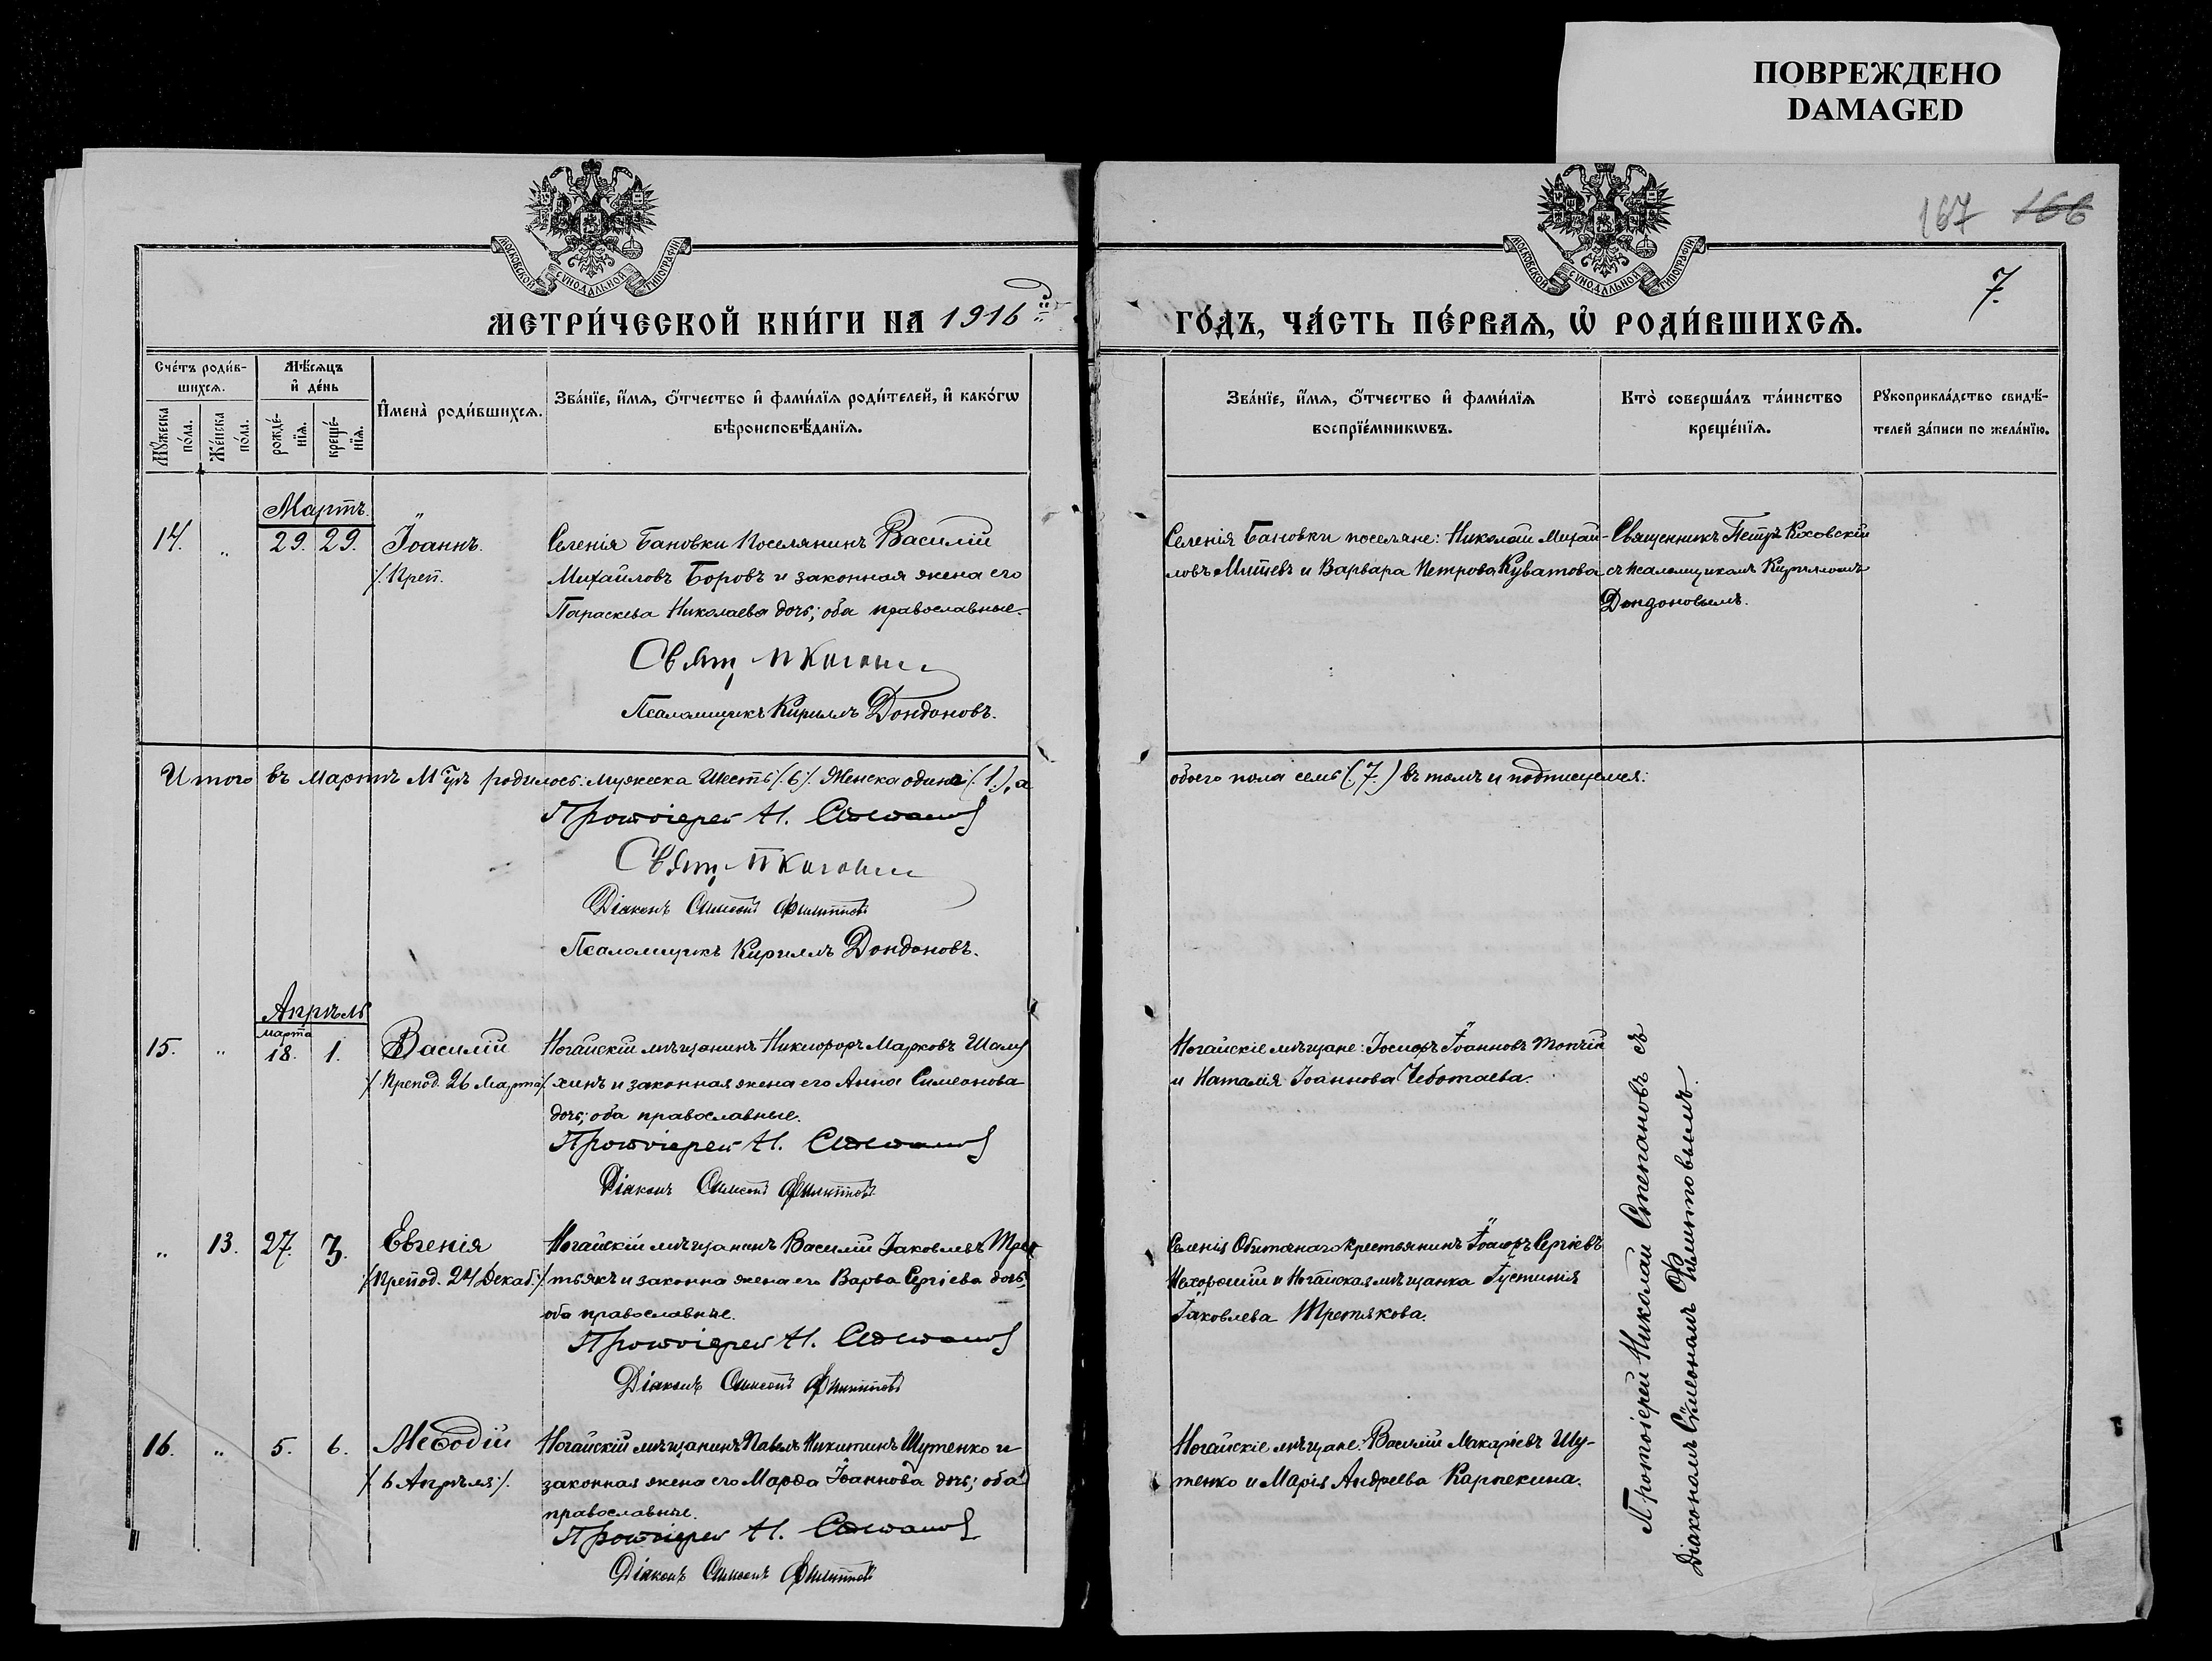 ПОВРЕЖДЕНО
DAMAGED
167 166
7.
МОСКОВСКОЙ СУНОДАЛЬНОЙ ТИПОГРАФІИ
МОСКОВСКОЙ СУНОДАЛЬНОЙ ТИПОГРАФІИ
МЕТРИ́ЧЕСКОЙ КНИ́ГИ НА 1916
ГО́ДЪ, ЧА́СТЬ ПЕ́РВАѦ, Ѡ҆ РОДИ́ВШИХСѦ.
Сче́тъ роди́в-
шихсѧ.
Мꙋ́жеска по́ла.
Же́нска по́ла.
Мѣ́сѧцъ
и҆ де́нь
рожде́-
нїѧ.
креще́-
нїѧ.
И҆мена̀ роди́вшихсѧ.
Зва́нїе, и҆́мѧ, ѻ҆́тчество и҆ фами́лїѧ роди́телей, и҆ како́гѡ
вѣроисповѣ́данїѧ.
Зва́нїе, и҆́мѧ, ѻ҆́тчество и҆ фами́лїѧ
воспрїе́мникѡвъ.
Кто̀ соверша́лъ та́инство
креще́нїѧ.
Рꙋкоприкла́дство свидѣ́-
телей за́писи по жела́нїю.
Мартъ.
14. „ 29. 29. Іоаннъ.
/Преп.
Селенія Бановки Поселянинъ Василій
Михайловъ Боровъ и законная жена его
Параскева Николаева дочь; оба православные.
Свящ П
Псаломщикъ Кириллъ Дондоновъ.
Селенія Бановки поселяне: Николай Михай-
ловъ Митевъ и Варвара Петрова Куватова
Священникъ Петръ Косовскій
съ псаломщикомъ Кирилломъ
Дондоновымъ.
Итого въ мартѣ М-цѣ родилось: Мужеска Шесть (6). Женска одинъ (1.), а
обоего пола семь (7.) въ томъ и подписуемся:
Протоіерей Н. Степановъ
Свящ П
Діаконъ Симеонъ Филиповъ
Псаломщикъ Кириллъ Дондоновъ.
Апрѣль
марта
15. „ 18. 1. Василій
/Препод. 26 Марта/
Ногайскій мѣщанинъ Никифоръ Марковъ Шалу
хинъ и законная жена его Анна Симеонова
дочь; оба православные.
Протоіерей Н. Степановъ
Діаконъ Симеонъ Филиповъ
Ногайскіе мѣщане: Іосифъ Іоанновъ Топчій
и Наталія Іоаннова Чеботаева.
„ 13. 27. 3. Евгенія
/Препод. 24 Декаб./
Ногайскій мѣщанинъ Василій Іаковлевъ Тре
тьякъ и законна жена его Варва Сергіева дочь,
оба православные.
Протоіерей Н. Степановъ
Діаконъ Симеонъ Филиповъ
Селенія Обиточнаго крестьянинъ Іосифъ Сергіевъ
Нехорошій и Ногайская мѣщанка Іустинія
Іаковлева Третякова.
16. „ 5. 6. Меѳодій
/6 Апрѣля/.
Ногайскій мѣщанинъ Павелъ Никитинъ Шутенко и
законная жена его Марѳа Іоаннова дочь; оба
православные.
Протоіерей Н. Степановъ
Діаконъ Симеонъ Филиповъ
Ногайскіе мѣщане: Василій Макаріевъ Шу-
тенко и Марія Андреева Карпекина.
Протоіерей Николай Степановъ съ
Діакономъ Симеономъ Филиповымъ.